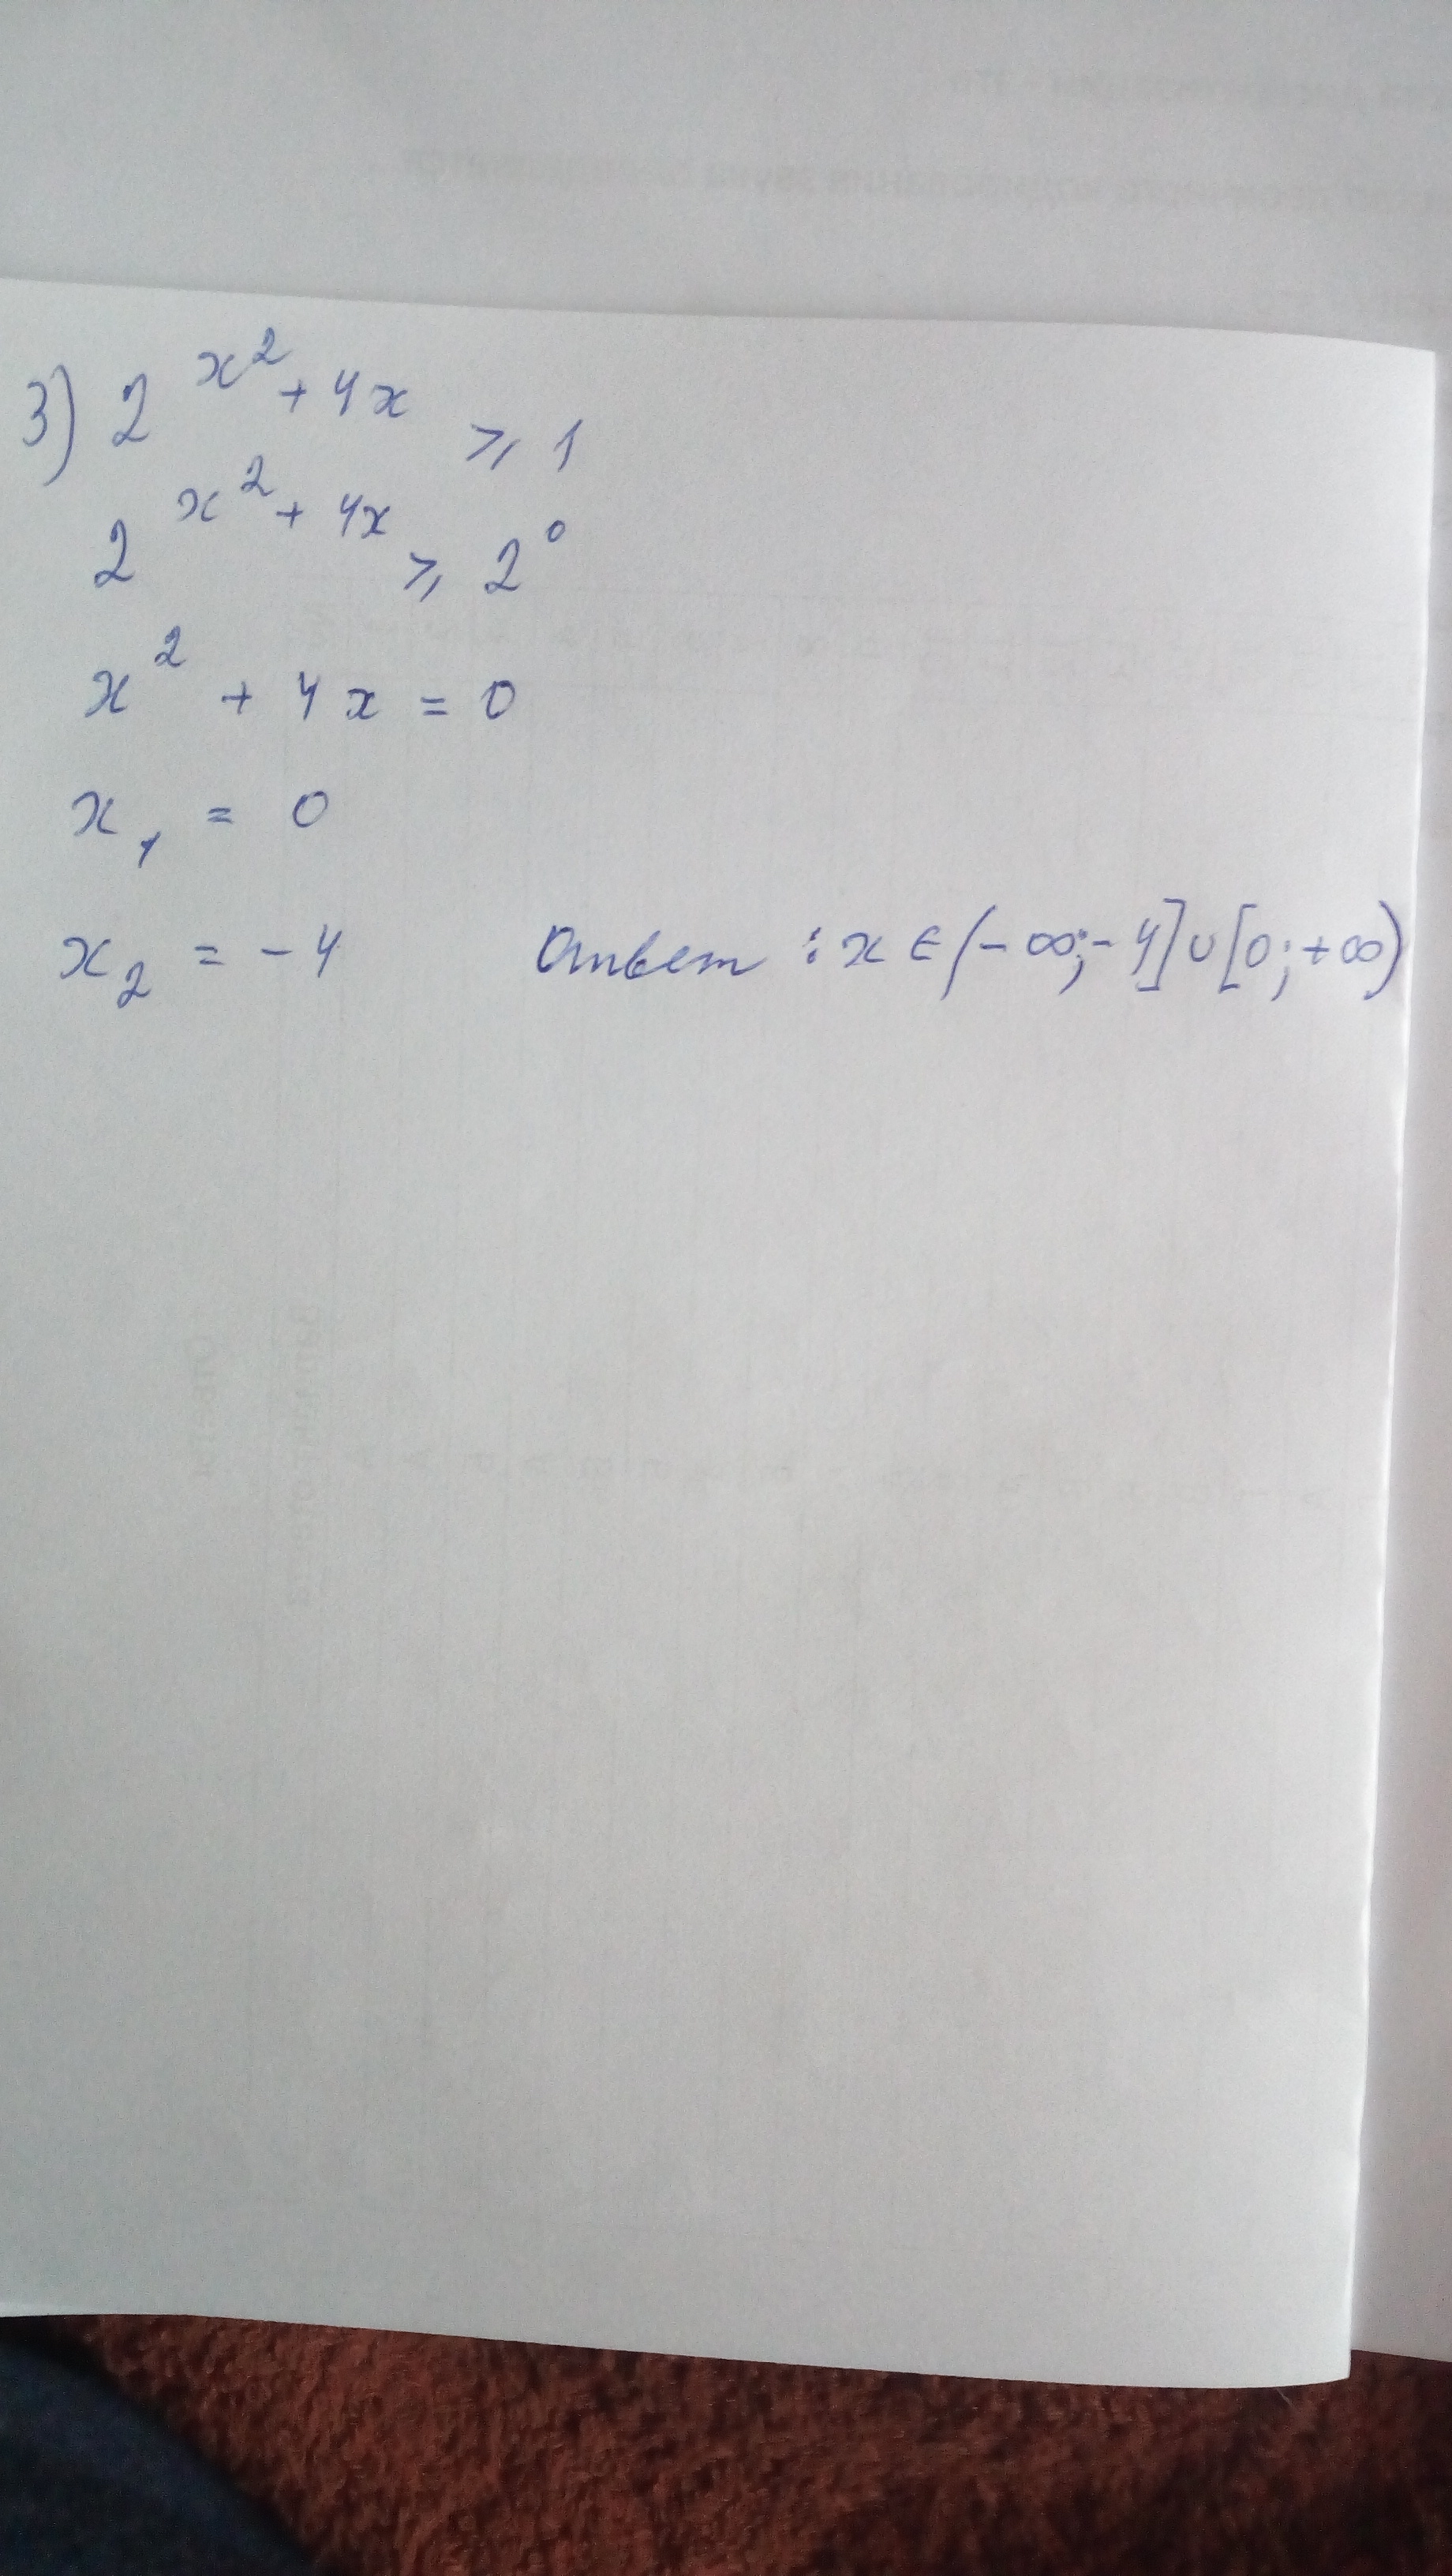 3) 2^{x^2 + 4x} ⩾ 1
2^{x^2 + 4x} ⩾ 2^0
x^2 + 4x = 0
x_1 = 0
x_2 = -4 Ответ : x ∈ (-∞; -4] ∪ [0; +∞)